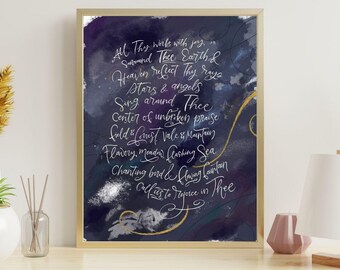 All Thy works with joy
Surround Thee Earth &
Heaven reflect Thy rays
Stars & angels
Sing around Thee
Center of unbroken praise
field & forest vale & mountain
Flowery meadow flashing Sea
Chanting bird & flowing fountain
Call us to rejoice in Thee